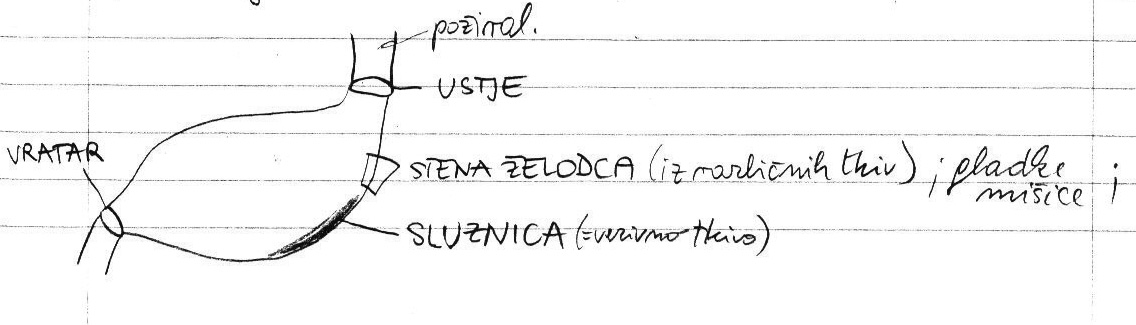 požiral.
USTJE
VRATAR
STENA ŽELODCA (iz različnih tkiv) ; gladke
mišice ;
SLUZNICA (=vezivno tkivo)